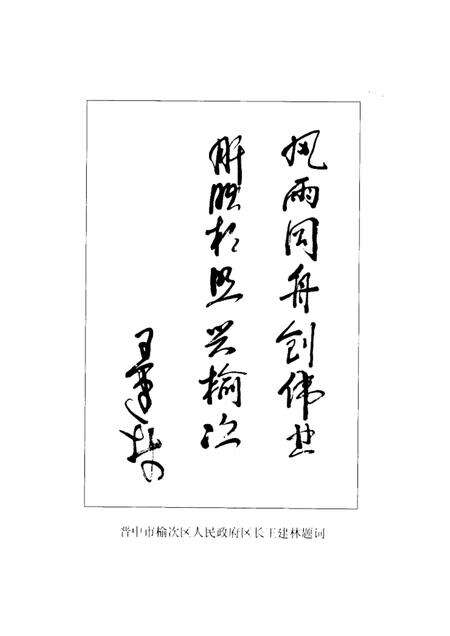 风雨同舟创伟业
肝胆相照兴榆次
王建林
晋中市榆次区人民政府区长王建林题词